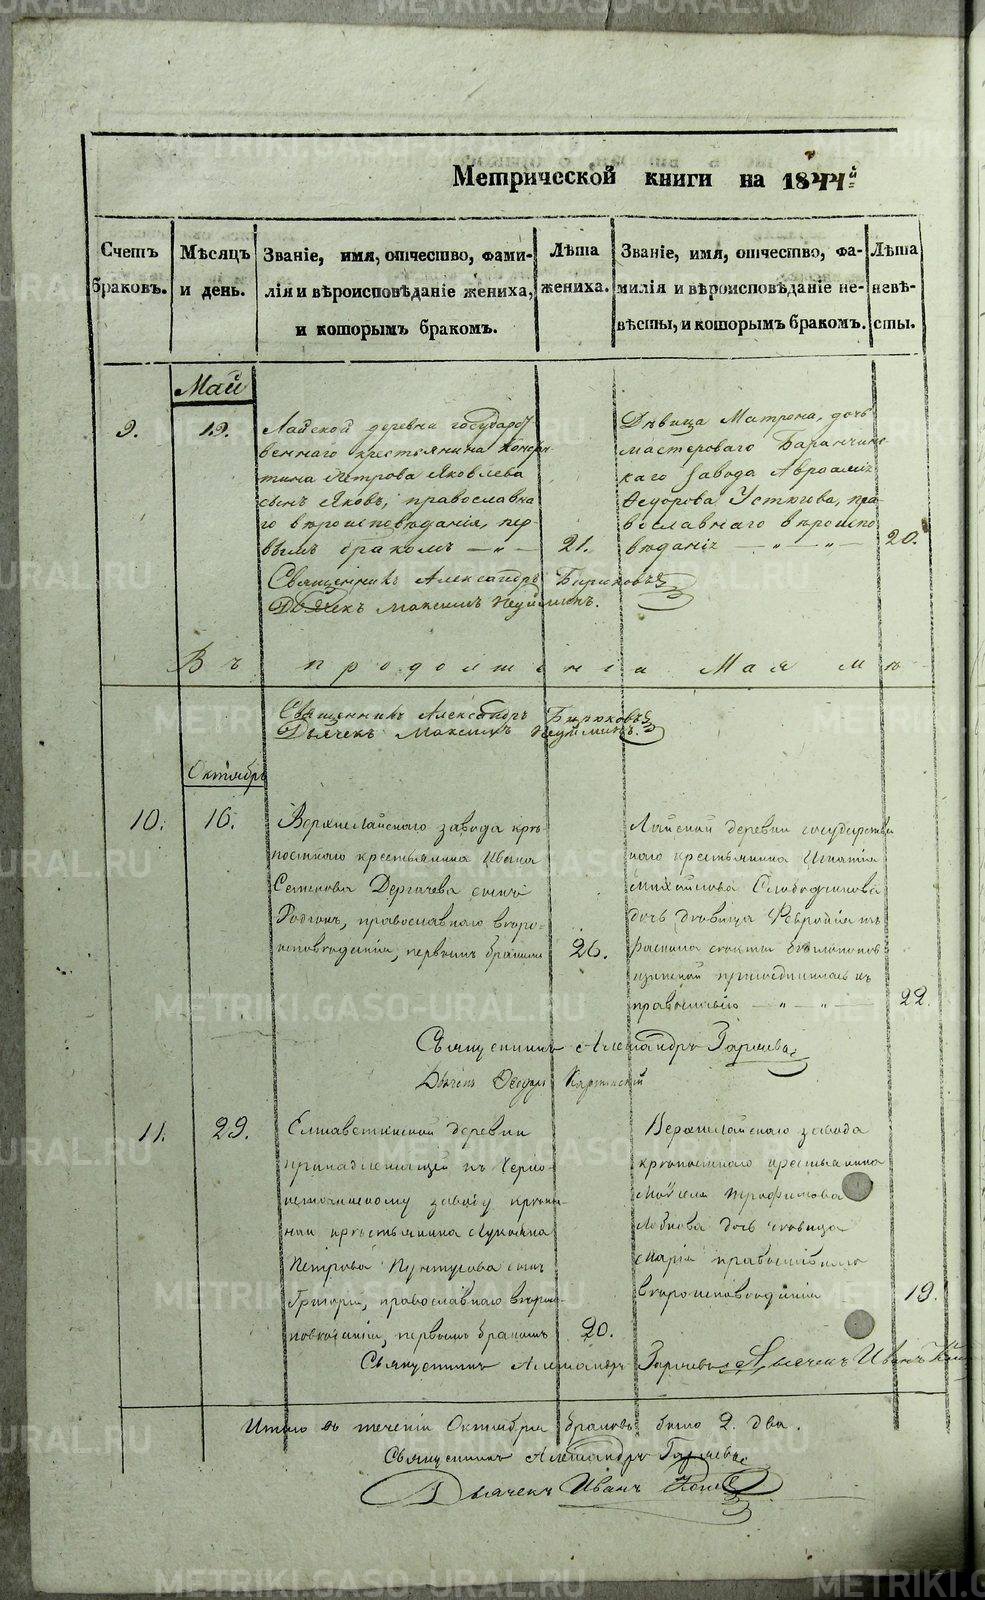 Метрической книги на 1844й
Счетъ браковъ.
Мѣсяцъ и день.
Званіе, имя, отчество, фами-
лія и вѣроисповѣданіе жениха,
и которымъ бракомъ.
Лѣта
жениха.
Званіе, имя, отчество, фа-
милія и вѣроисповѣданіе не-
вѣсты, и которымъ бракомъ.
Лѣта
невѣ-
сты.
Май
9.
19.
Лайской деревни государст
веннаго крестьянина Конста
тина Петрова Яковлева
сынъ Яковъ, православна
го вѣроисповѣданія, пер-
вымъ бракомъ — „ —
21.
Дѣвица Матрона, дочь
мастероваго Баранчинс
каго завода Авраамія
Ѳедорова Устюгова, пра
вославнаго вѣроиспо
вѣданія — „ — „ —
20.
Священникъ Александръ Бирюковъ
Дьячекъ Максимъ Неуйминъ.
Въ продолженіи Мая м
Священникъ Александръ Бирюковъ
Дьячекъ Максимъ Неуйминъ.
Октябрь
10.
16.
Верхнелайскаго завода крѣ
постнаго крестьянина Ивана
Семенова Дергачева сынъ
Родіонъ, православнаго вѣро-
исповѣданія, первымъ бракомъ
26.
Лайской деревни государствен
наго крестьянина Игнатія
Михайлова Слободчикова
дочь дѣвица
раскола секты
присоединилась къ
православію — „ — „ —
22.
Священникъ Александръ
Дьячекъ Ѳедоръ
11.
29.
Елизаветинской деревни
принадлежащей къ Черно-
источинскому заводу
крестьянина Лукіяна
Петрова сынъ
Григорій, православнаго вѣроис-
повѣданія, первымъ бракомъ
20.
Верхнелайскаго завода
крѣпостнаго крестьянина
Моисея Трофимова
дочь дѣвица
Марія православнаго
вѣроисповѣданія
19.
Священникъ Александръ Дьячекъ Иванъ
Итого въ теченіи Октября браковъ было 2. два.
Священникъ Александръ
Дьячекъ Иванъ
METRIKI.GASO-URAL.RU